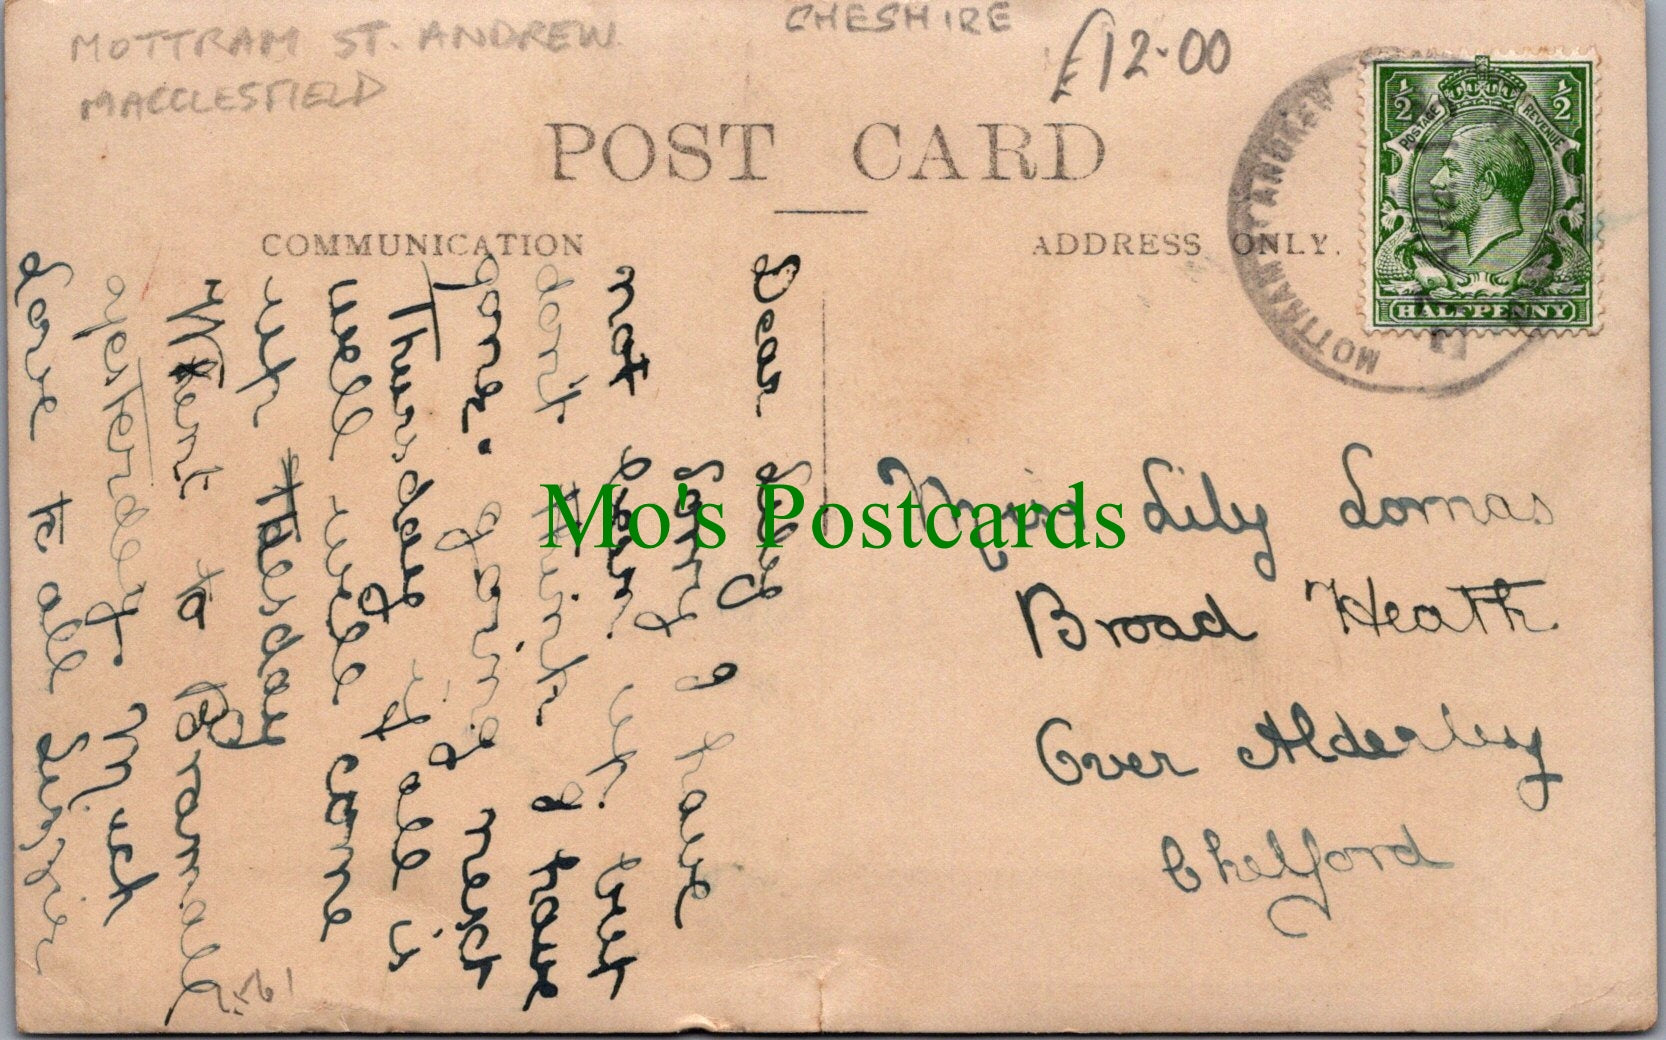 MOTTRAM ST. ANDREW
MACCLESFIELD
CHESHIRE
£12.00
POST CARD
COMMUNICATION
ADDRESS ONLY.
MOTTRAM ST ANDREW
½ ½
POSTAGE REVENUE
HALFPENNY
Dear Lily
Sorry I have
not been up but
dont think I have
gone. going next
Thursday if all is
well will come
up Tuesday
Went to Bramall
yesterday. Much
love to all Lizzie
Miss Lily Lomas
Broad Heath
Over Alderley
Chelford
Mo's Postcards